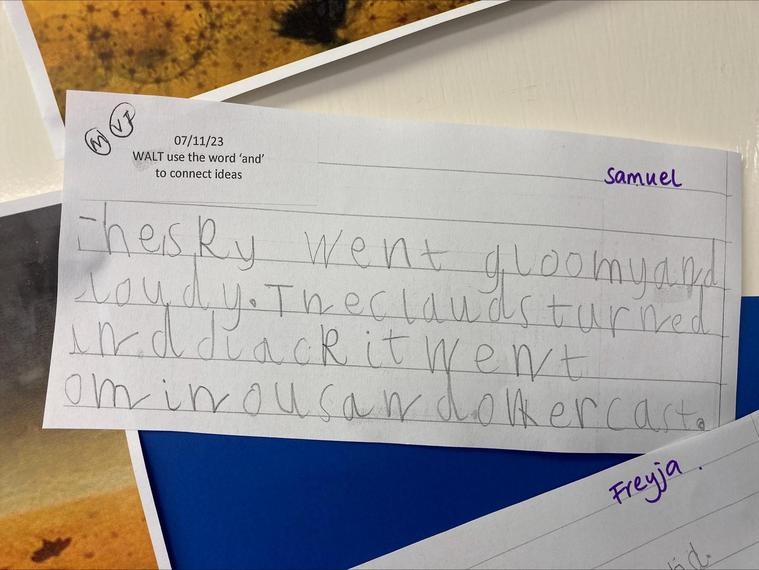 M VF
07/11/23
WALT use the word 'and'
to connect ideas
Samuel
The sky went gloomy and
loudy. The clauds turned
and dlack it went
ominous and overcast.
Freyja.